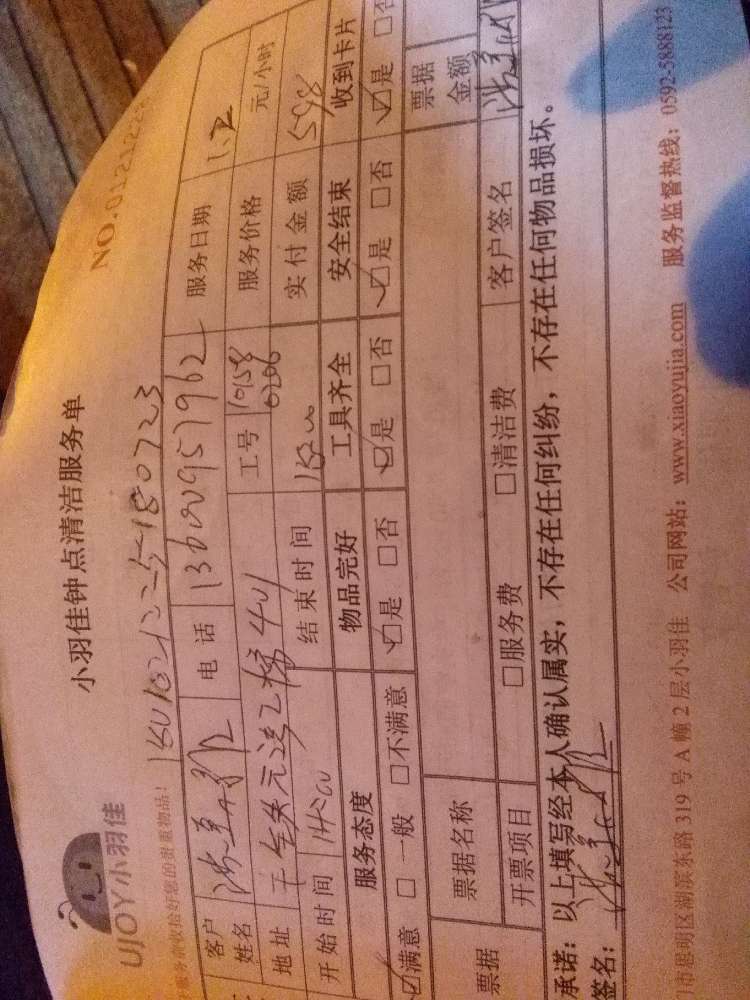 UJOY小羽佳
小羽佳钟点清洁服务单
NO.0121222
服务前收拾好您的贵重物品!
客户姓名
电话 13600957962
服务日期 1.2
地址
工号 10158 0206
服务价格 元/小时
开始时间
结束时间
实付金额 598
服务态度 物品完好 工具齐全 安全结束 收到卡片
☑满意 □一般 □不满意 ☑是 □否 ☑是 □否 ☑是 □否 ☑是 □否
票据 票据名称 票据金额
开票项目 □服务费 □清洁费 客户签名
承诺:以上填写经本人确认属实,不存在任何纠纷,不存在任何物品损坏。
签名:
市思明区湖滨东路 319 号 A 幢 2 层小羽佳 公司网站:www.xiaoyujia.com 服务监督热线:0592-5888123